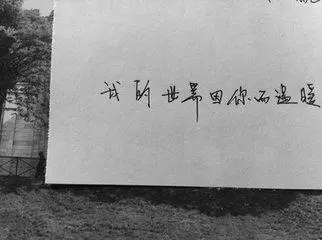 我的世界因你而温暖